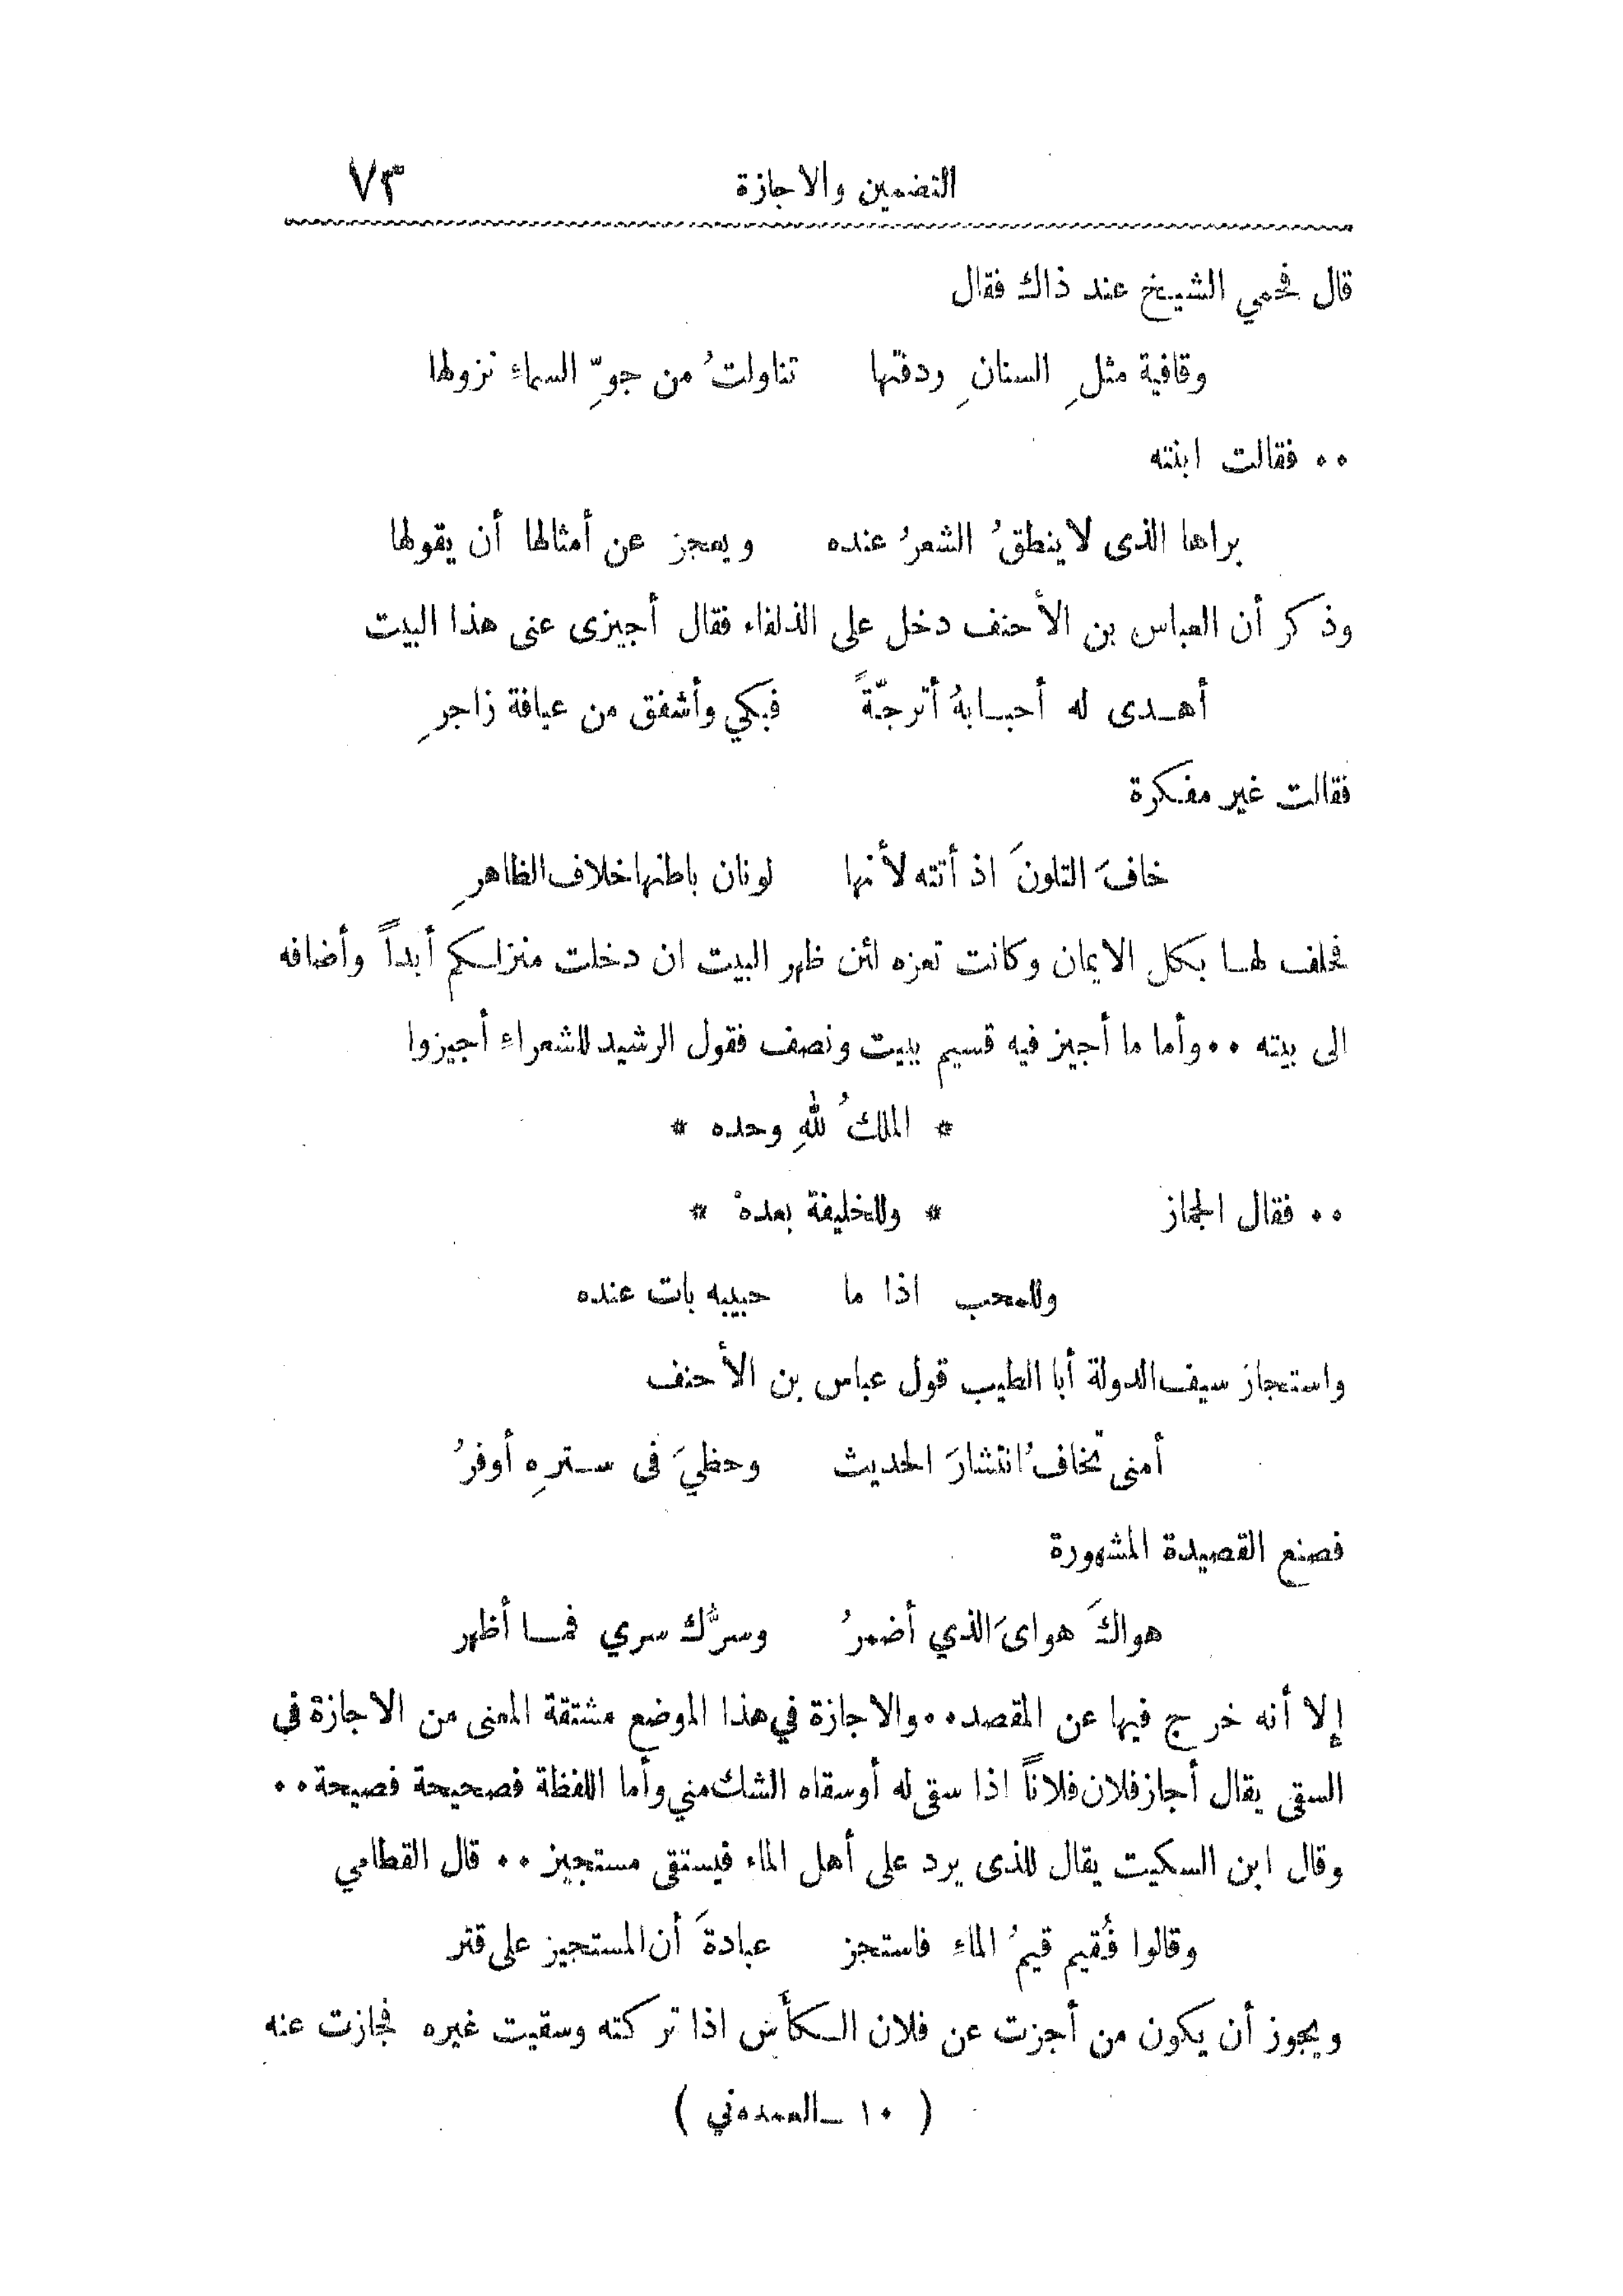 التضمين والاجازة ٧٣
قال فحمي الشيخ عند ذاك فقال
وقافية مثلِ السنانِ ودقتها تناولتُ من جوِّ السماءِ نزولها
٠٠ فقالت ابنته
براها الذى لاينطقُ الشعرُ عنده ويعجز عن أمثالها أن يقولها
وذكر أن العباس بن الأحنف دخل على الذلفاء فقال أجيزى عنى هذا البيت
أهدى له أحبابهُ أترجّةً فبكي وأشفق من عيافة زاجرِ
فقالت غير مفكرة
خافَ التلونَ اذ أتته لأنها لونان باطنها خلاف الظاهرِ
فحلف لها بكل الايمان وكانت تعزه لئن ظهر البيت ان دخلت منزلكم أبداً وأضافه
الى بيته ٠٠ وأما ما أجيز فيه قسيم ببيت ونصف فقول الرشيد للشعراءِ أجيزوا
* الملكُ للهِ وحده *
٠٠ فقال الجماز * وللخليفة بعدهْ *
وللمحب اذا ما حبيبه بات عنده
واستجاز سيف الدولة أبا الطيب قول عباس بن الأحنف
أمنى تخافُ انتشارَ الحديث وحظيَ فى سترِه أوفرُ
فصنع القصيدة المشهورة
هواكَ هواىَ الذي أضمرُ وسرُّك سري فما أظهر
إلا أنه خرج فيها عن المقصد٠٠والاجازة في هذا الموضع مشتقة المعنى من الاجازة في
السقى يقال أجاز فلان فلاناً اذا سقى له أوسقاه الشك مني وأما اللفظة فصحيحة فصيحة٠٠
وقال ابن السكيت يقال للذى يرد على أهل الماء فيستقى مستجيز ٠٠ قال القطامي
وقالوا فُقيم قيمُ الماءِ فاستجز عبادةَ أن المستجيز على قتر
ويجوز أن يكون من أجزت عن فلان الكأس اذا تركته وسقيت غيره فجازت عنه
( ١٠ ـ العمده ني )